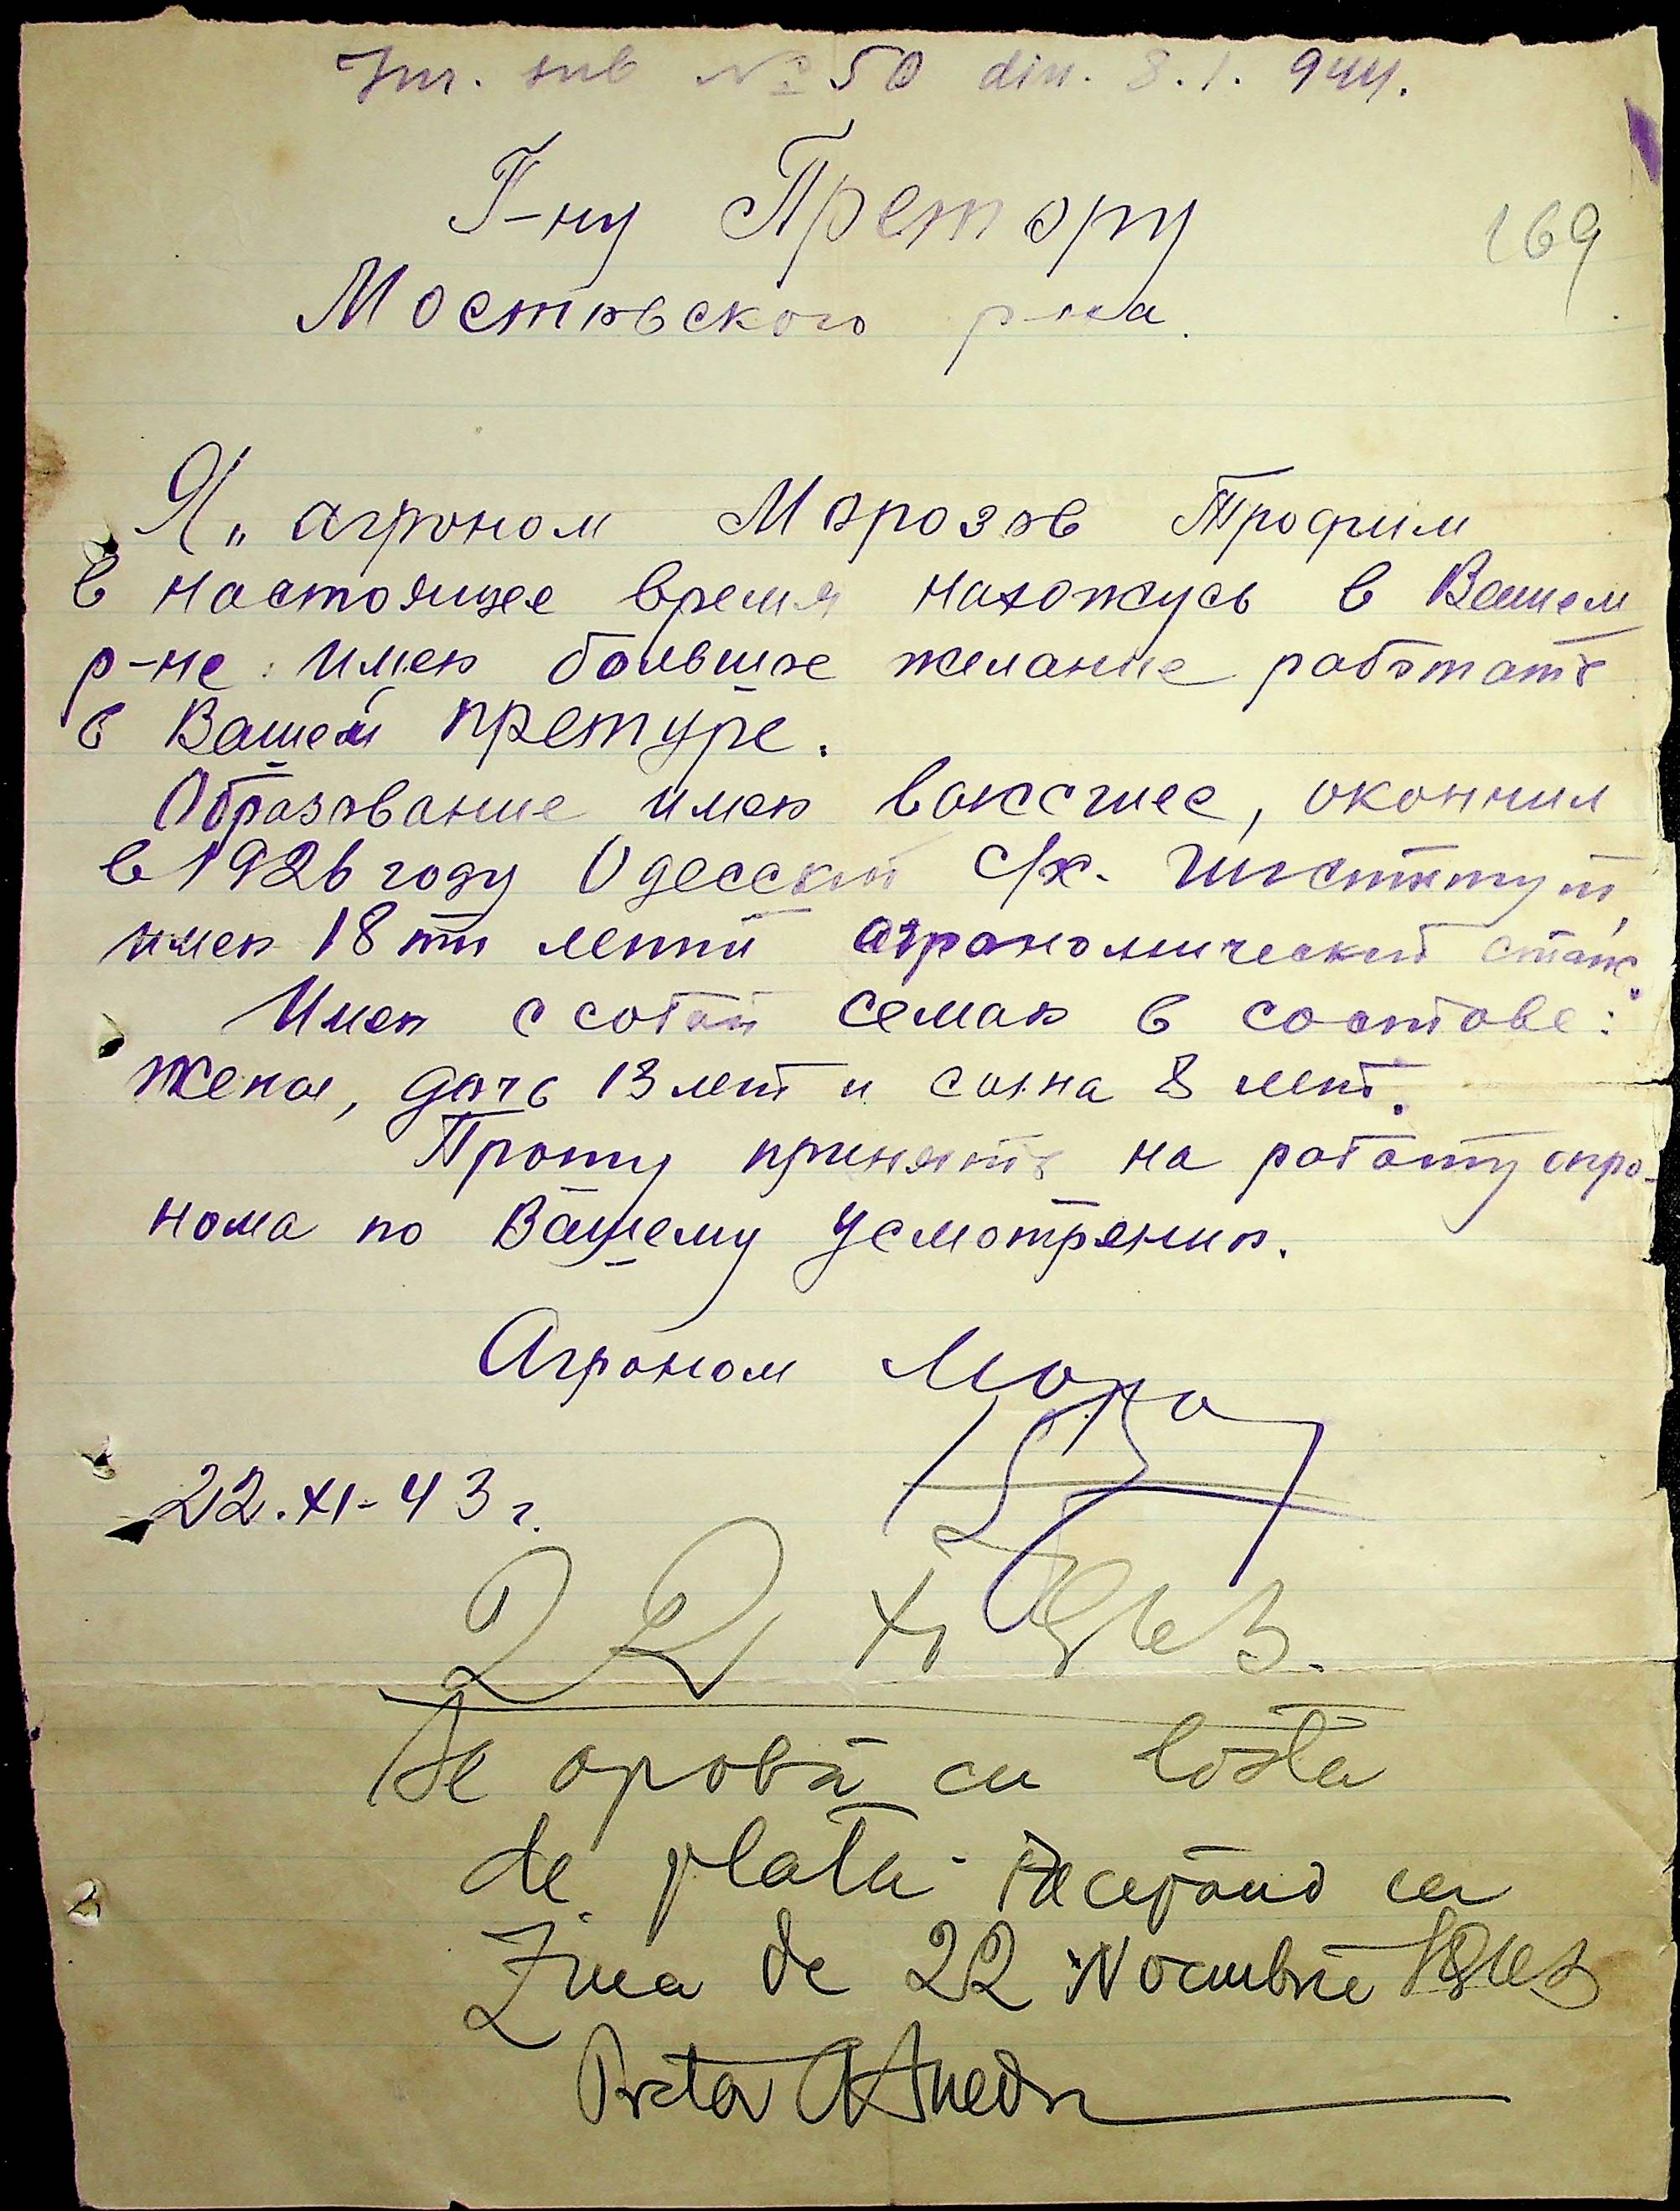 Inr. sub № 50 din. 8.1.944.
Г-ну Претору
169
Мостовского р-на.
Я, агроном Морозов Трофим
в настоящее время нахожусь в Вашем
р-не. имею большое желание работать
в Вашей претуре.
Образование имею высшее, окончил
в 1926 году Одесский с/х. Институт,
имею 18 ти летний агрономический стаж.
Имею с собой семью в составе:
жена, дочь 13 лет и сына 8 лет.
Прошу принять на работу агро-
нома по Вашему усмотрению.
Агроном Мороз
22.XI-43 г.
22 XI 943.
Se aprobă cu lista
de plată începând cu
Ziua de 22 Noembrie 1943
Pretor